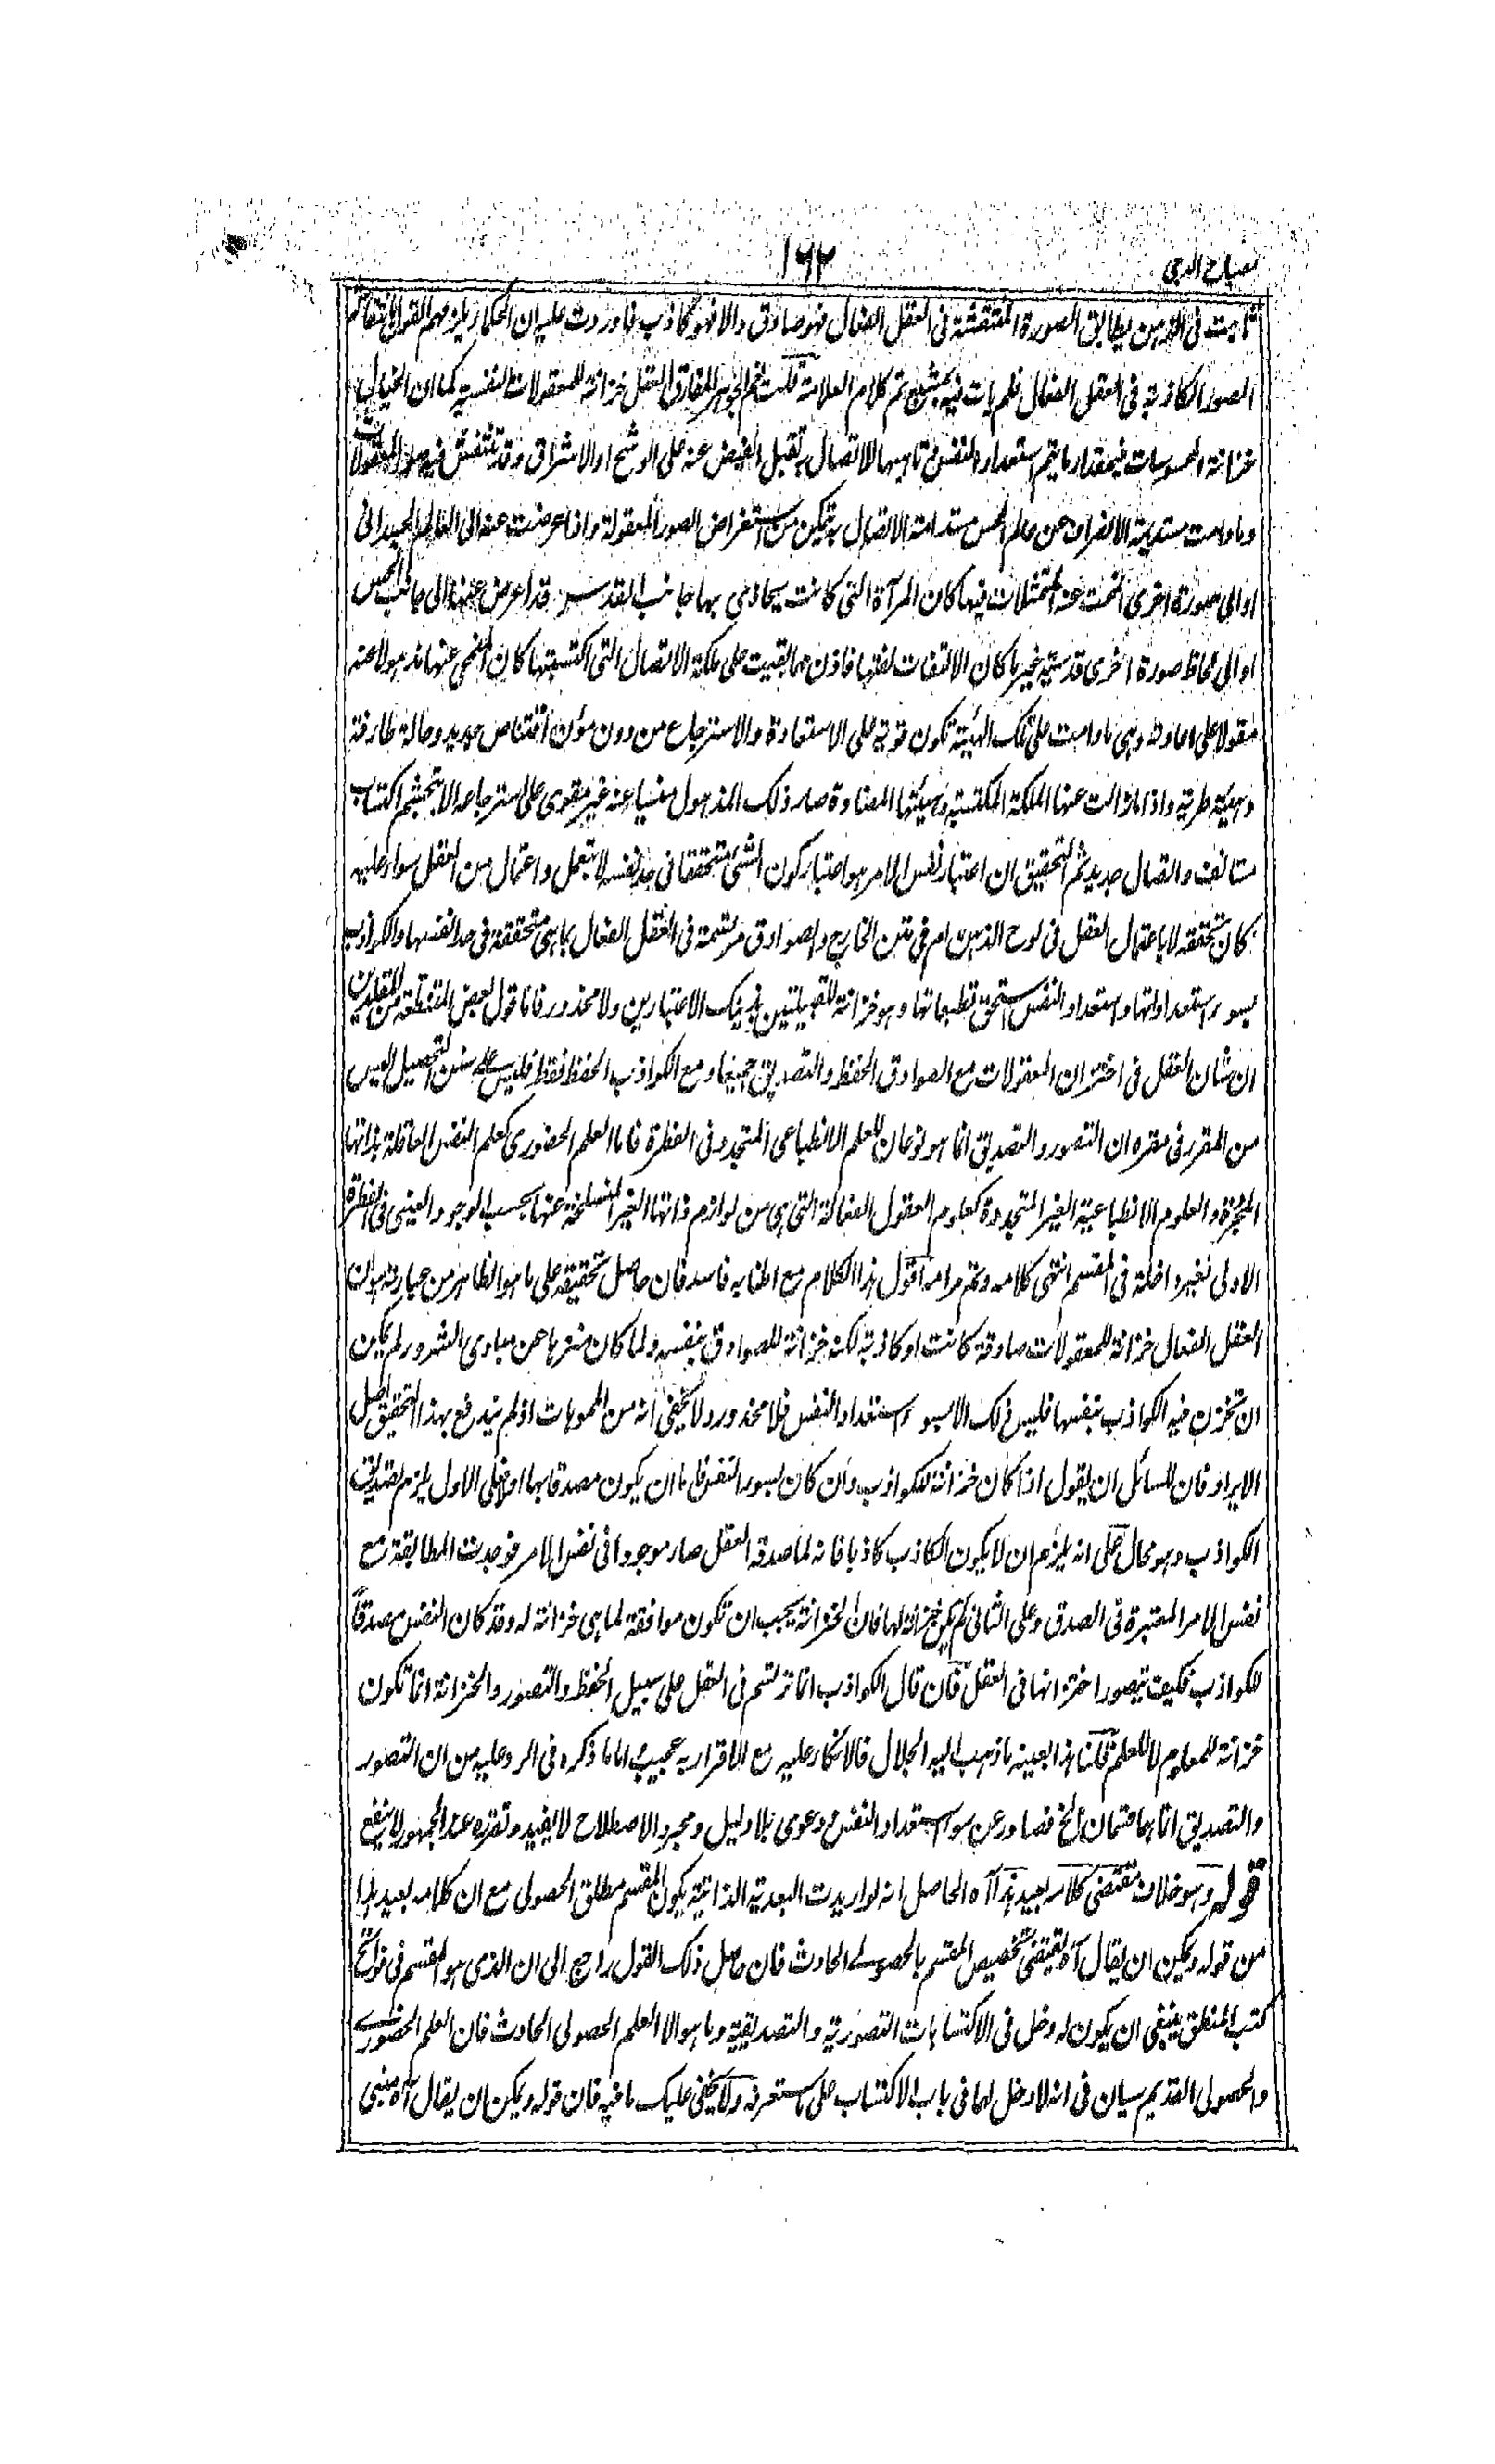 مصباح الدجى
١٦٢
ثابت فى الذهن يطابق الصورة المنتقشة فى العقل الفعال فهو صادق والا فهو كاذب فاوردت عليه ان الحكماء يلزمهم القول بانتقاش
الصور الكاذبة فى العقل الفعال فلم يات فيه بمشبع تم كلام العلامة قلت نعم الجوهر المفارق العقل خزانة للمعقولات النفسية كما ان الخيال
خزانة المحسوسات فبمقدار ما يتم استعداد النفس وتاهبها للاتصال به تقبل الفيض عنه على الوشح او الاشراق وقد تنتقش فيه صور المعقولات
وما دامت مستديمة الانصراف عن عالم الحس مستدامة الاتصال به تتمكن من استعراض الصور المعقولة واذا اعرضت عنه الى العالم الجسدانى
او الى صورة اخرى انمحت عنه المتمثلات فيها كان المرآة التى كانت يحاذى بها جانب القدس قد اعرض عنها الى جانب الحس
او الى لحاظ صورة اخرى قدسية غيرما كان الالتفات لفتها فاذن مهما بقيت على ملكة الاتصال التى اكتسبتها كان المنمحى عنها مذهولا عنه
مقولا على اعادته وهى ما دامت على تلك الهيئة تكون قوية على الاستعادة والاسترجاع من دون مؤن اقتناص جديد وحالة طارفة
وهيئة طرفية واذا ما زالت عنها الملكة المكتسبة وهيئتها المعتادة صار ذلك المذهول منسيا عنه غير مقوى على استرجاعه الا بتجشم اكتساب
مستانف واتصال جديد ثم التحقيق ان اعتبار نفس الامر هو اعتبار كون الشئ متحققا فى حد نفسه لا بتعمل واعتمال من العقل سواء عليه
كان تحققه لا باعتمال العقل فى لوح الذهن ام فى متن الخارج والصوادق مرتسمة فى العقل الفعال بما هى متحققة فى حد انفسها والكواذب
بسوء استعداداتها واستعداد النفس استحق تطبعاتها وهو خزانة للقبيلتين بذينك الاعتبارين ولا محذور فاما قول بعض المتفطنة من المقلدين
ان شان العقل فى اختزان المعقولات مع الصوادق الحفظ والتصديق جميعا ومع الكواذب الحفظ فقط فليس على سنن التحصيل اليس
من المقرر فى مقره ان التصور والتصديق انما هو نوعان للعلم الانطباعى المتجدد فى الفطرة فاما العلم الحضورى كعلم النفس العاقلة بذاتها
المجردة والعلوم الانطباعية الغير المتجددة كعلوم العقول الفعالة التى هى من لوازم ذاتها الغير المنسلخة عنها بحسب الوجود العينى فى الفطرة
الاولى فغير داخلة فى المقسم انتهى كلامه وتم مرامه اقول هذا الكلام مع اطنابه فاسد فان حاصل تحقيقه على ما هو الظاهر من عبارته هو ان
العقل الفعال خزانة للمعقولات صادقة كانت او كاذبة لكنه خزانة للصوادق بنفسه ولما كان منزها عن مبادى الشرور لم يكن
ان تخزن فيه الكواذب بنفسها فليس ذلك الا بسوء استعداد النفس فلا محذور ولا يخفى انه من المموهات اذ لم يندفع بهذا التحقيق اصل
الايراد فان للسائل ان يقول اذا كان خزانة للكواذب وان كان بسوء النفس فاما ان يكون مصدقا بها او لا فعلى الاول يلزم تصديق
الكواذب وهو محال على انه يلزم ان لا يكون الكاذب كاذبا فانه لما صدقه العقل صار موجودا فى نفس الامر فوجدت المطابقة مع
نفس الامر المعتبرة فى الصدق وعلى الثانى لم يكن خزانة لها فان الخزانة يجب ان تكون موافقة لما هى خزانة له وقد كان النفس مصدقاً
للكواذب فكيف يتصور اختزانها فى العقل فان قال الكواذب انما ترتسم فى العقل على سبيل الحفظ والتصور والخزانة انما تكون
خزانة للمعلوم لا للعلم قلنا هذا بعينه ما ذهب اليه الجلال فالانكار عليه مع الاقرار به عجيب واما ما ذكره فى الرد عليه من ان التصور
والتصديق انما هما قسمان الخ فصادر عن سوء استعداد النفس ودعوى بلا دليل ومجرد الاصطلاح لا يفيد وتقرره عند الجمهور لا ينفع
قوله وهو خلاف مقتضى كلامه بعيد هذا آه الحاصل انه لو اريدت البعدية الذاتية يكون المقسم مطلق الحصولى مع ان كلامه بعيد هذا
من قوله ويمكن ان يقال آه يقتضى تخصيص المقسم بالحصولى الحادث فان حاصل ذلك القول راجع الى ان الذى هو المقسم فى فواتح
كتب المنطق ينبغى ان يكون له دخل فى الاكتسابات التصورية والتصديقية وما هو الا العلم الحصولى الحادث فان العلم الحضورى
والحصولى القديم سيان فى انه لا دخل لهما فى باب الاكتساب على ما ستعرفه ولا يخفى عليك ما فيه فان قوله ويمكن ان يقال آه مبنى